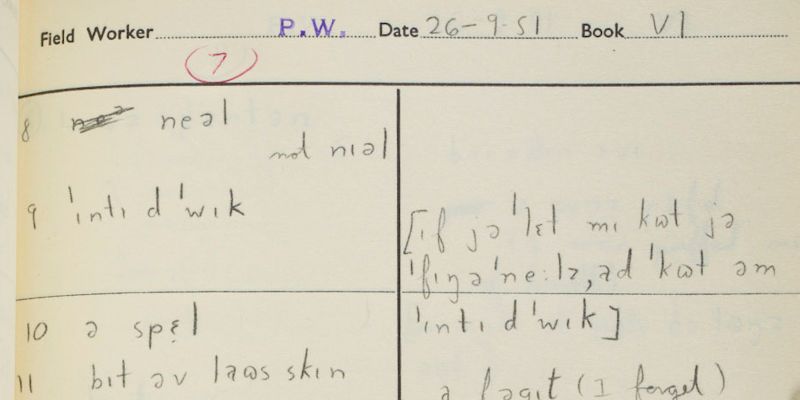 Field Worker P.W. Date 26-9-51 Book VI
7
8 neəl
not nɪəl
9 ˈɪntɪ d ˈwɪk
[ɪf jə ˈlɛt mɪ kʊt jə
ˈfɪŋə ˈneːlz, əd ˈkʊt əm
ˈɪntɪ d ˈwɪk]
10 ə spɛl
11 bɪt əv laʊs skɪn
ə fəgɪt (I forget)